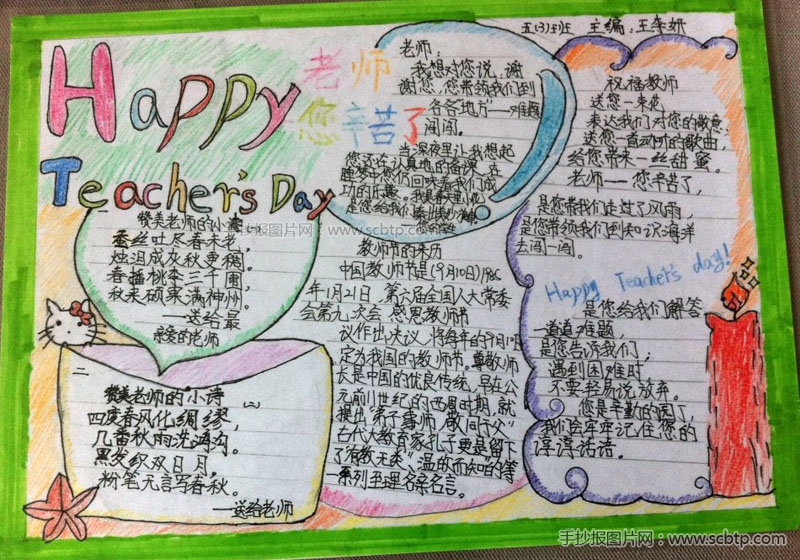 Happy
Teacher's Day
老师
您辛苦了
五(3)班 主编:王李妍
老师:
我想对您说,谢
谢您,您带领我们到
各各“地方”——难题
闯闯。
当深夜里让我想起
您还在认真地的备课,在
睡梦中您仍回味着我们成
功的乐趣。我是春里小花
是您给我们
赞美老师的小诗
蚕丝吐尽春未老,
烛泪成灰秋更稠,
春播桃李三千圃,
秋来硕果满神州。
——送给最
亲爱的老师
二
赞美老师的小诗
(二)
四度春风化绸缪,
几番秋雨洗鸿沟。
黑发积双日月,
粉笔无言写春秋。
——送给老师
教师节的来历
中国教师节是(9月10日)1985
年1月21日,第六届全国人大常委
会第九次会 感恩教师节
议作出决议,将每年的9月10日
定为我国的教师节。尊敬师
长是中国的优良传统,早在公
元前11世纪的西周时期,就
提出“弟子事师,敬同于父”
古代大教育家孔子更是留下
了“有教无类”、温故而知的等
一系列至理名亲名言。
祝福教师
送您一束花
表达我们对您的敬意,
送您一首动听的歌曲,
给您带来一丝甜蜜。
老师——您辛苦了,
是您带我们走过了风雨,
是您带领我们到知识海洋
去闯一闯。
Happy Teacher's day!
是您给我们解答
一道道难题,
是您告诉我们,
遇到困难时
不要轻易说放弃。
您是辛勤的园丁,
我们会牢牢记住您的
谆谆话语。
手抄报图片网 www.scbtp.com
手抄报图片网:www.scbtp.com